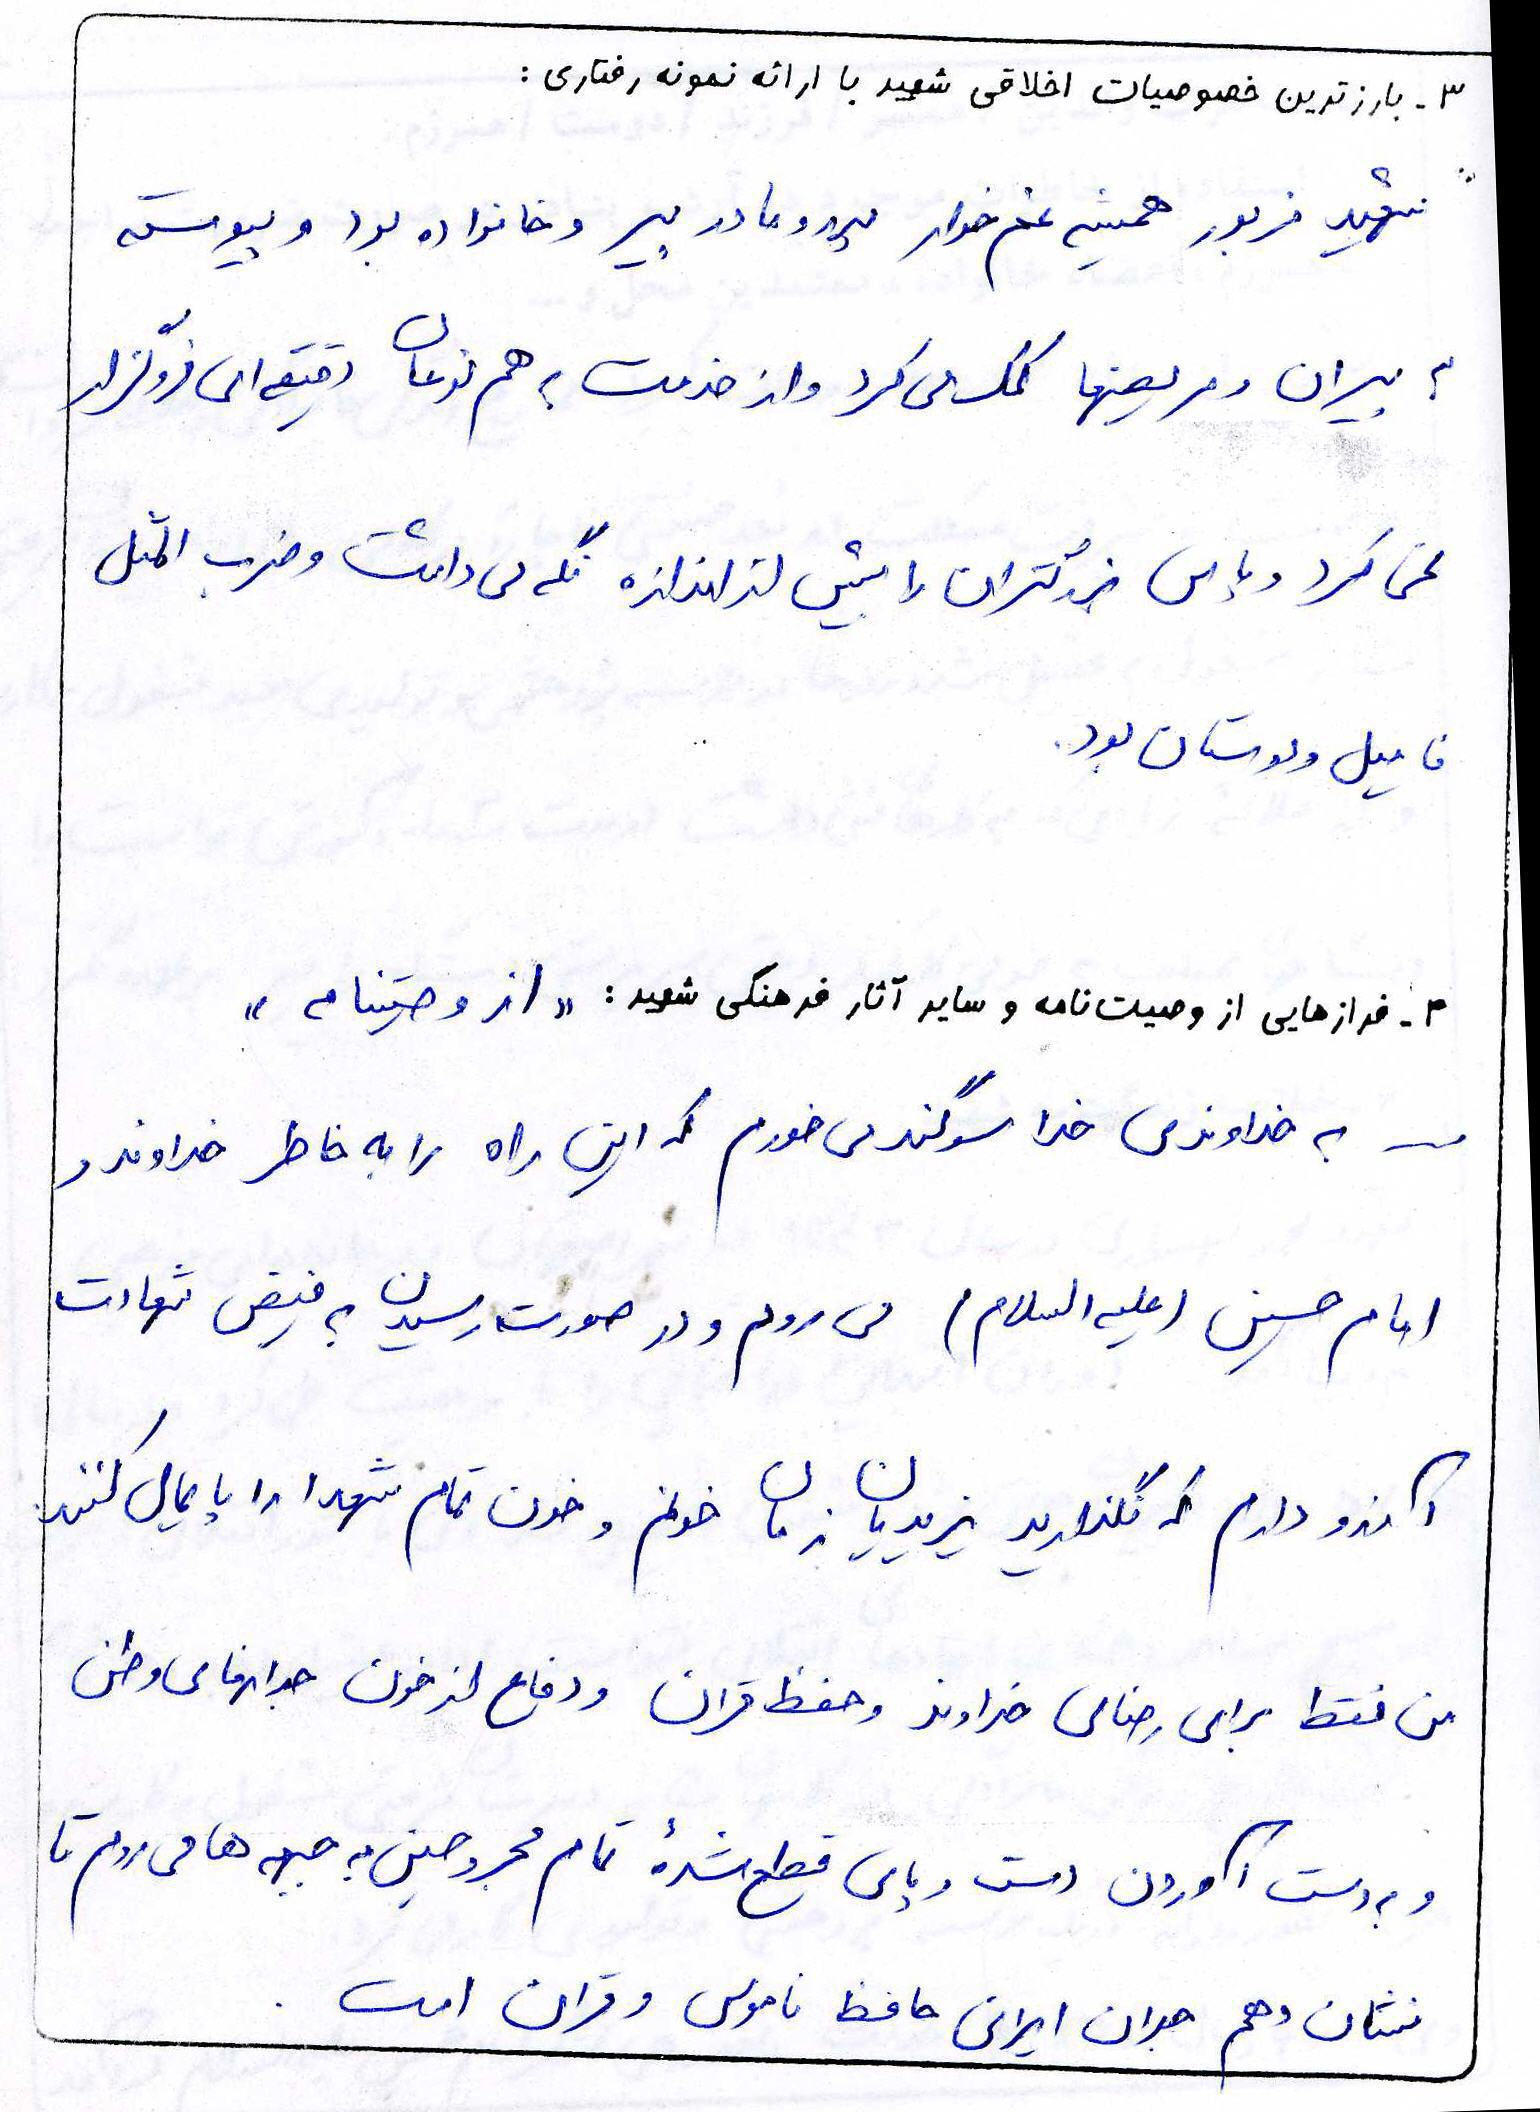 ۳- بارزترین خصوصیات اخلاقی شهید با ارائه نمونه رفتاری :
شهید مزبور همیشه غم خوار پدر و مادر پیر و خانواده بود و پیوسته
به پیران و مریضها کمک می کرد و از خدمت به هم نوعان دقیقه ای فروگزار
نمی کرد و پاس بزرگتران را بیش از اندازه نگه می داشت و ضرب المثل
فامیل و دوستان بود.
۴- فرازهایی از وصیت‌نامه و سایر آثار فرهنگی شهید : « از وصیتنامه »
ـ به خداوندی خدا سوگند می خورم که این راه را به خاطر خداوند و
امام حسین (علیه السلام) می روم و در صورت رسیدن به فیض شهادت
آرزو دارم که نگذارید یزیدیان زمان خونم و خون تمام شهدا را پایمال کنند.
من فقط برای رضای خداوند و حفظ قران و دفاع از خون جوانهای وطن
و بدست آوردن دست و پای قطع شدهٔ تمام مجروحین به جبهه ها می روم تا
نشان دهم جوان ایرانی حافظ ناموس و قران است .